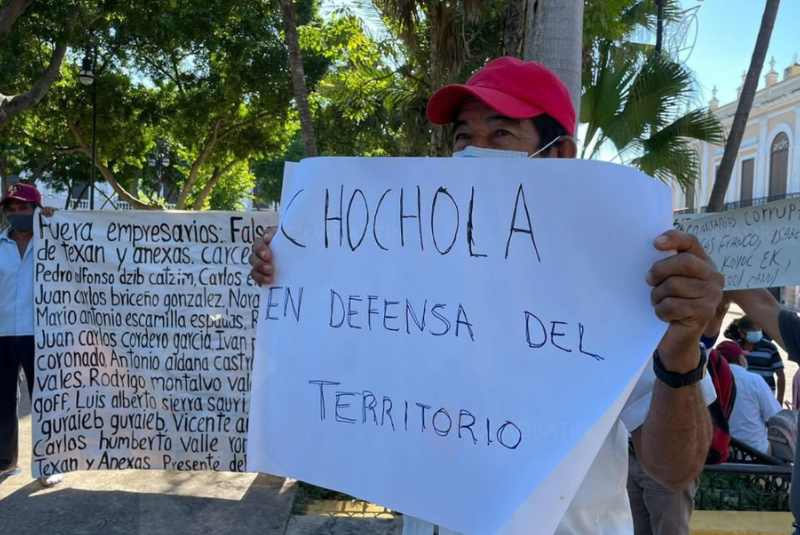 CHOCHOLA
EN DEFENSA DEL
TERRITORIO
Fuera empresarios: Fals
de texan y anexas. carce
Pedro alfonso azib catzim, Carlos
Juan carlos briceño gonzalez. Nor
Mario antonio escamilla espadas. R
Juan Carlos cordero garcia Ivan
coronado. Antonio aldana castr
vales, Rodrigo montalvo val
goff, Luis alberto sierra sauri
guraieb guraieb, Vicente a
Carlos humberto valle ro
Texan y Anexas. Presente del
CORRUP
FRANCO,
KOYOC EK,